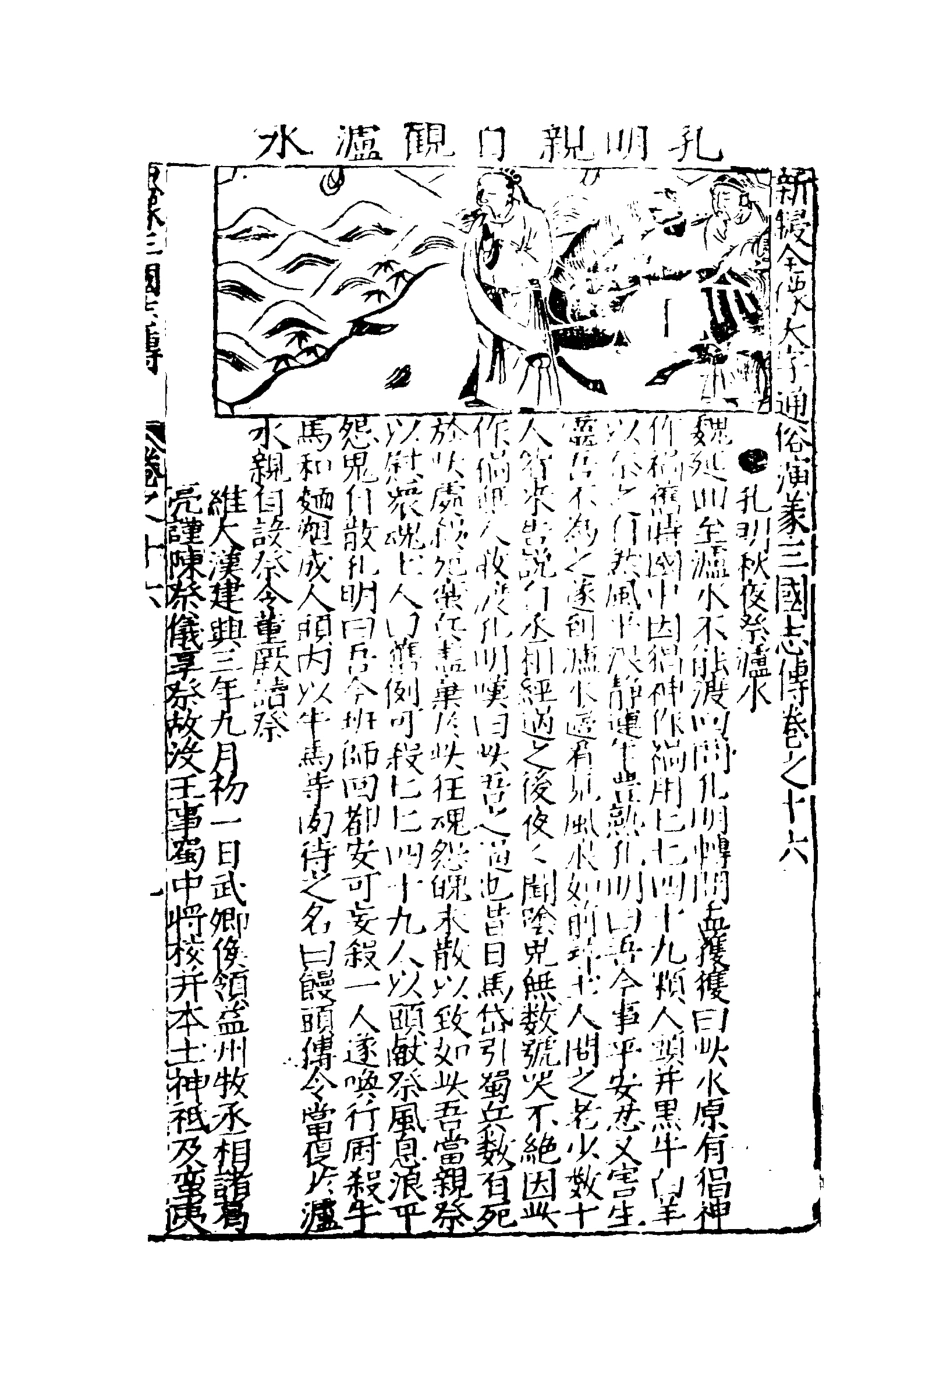 孔明親自觀瀘水
新鋟全像大字通俗演義三國志傳卷之十六
孔明秋夜祭瀘水
魏延回至瀘水不能渡回問孔明轉問孟獲獲曰此水原有猖神
作禍舊時國中因猖神作禍用七七四十九顆人頭并黑牛白羊
以祭之自然風平浪靜連年豐熟孔明曰吾今事平安忍又害生
靈吾不為之遂到瀘水邊看見風浪如前訝土人問之老少數十
人行來告說自水相經過之後夜々聞陰鬼無数號哭不絕因此
作禍無人敢渡孔明嘆曰此吾之過也昔日馬岱引蜀兵数百死
於此處殺死蠻兵盡棄於此狂魂怨鬼未散以致如此吾當親祭
以慰衆魂土人曰舊例可殺七七四十九人以頭献祭風息浪平
怨鬼自散孔明曰吾今班師回都安可妄殺一人遂喚行厨殺牛
馬和麵塑成人頭内以牛馬等肉待之名曰饅頭傳令當夜於瀘
水親自設祭令董厥讀祭
維大漢建興三年九月初一日武卿侯領益州牧丞相諸葛
亮謹陳祭儀享祭故没王事蜀中將校并本土神祇及蛮夷
像三國志傳
卷之十六
一